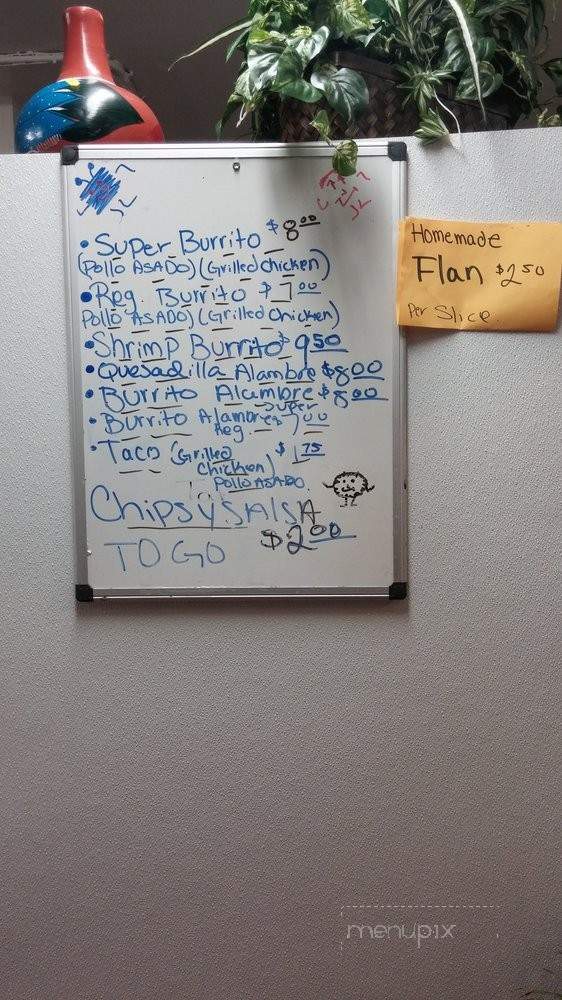 • Super Burrito $8.00
(Pollo ASADO) (Grilled chicken)
• Reg. Burrito $7.00
Pollo ASADO) (Grilled Chicken)
• Shrimp Burrito $9.50
• Quesadilla Alambre $8.00
• Burrito Alambre $8.00
super
• Burrito Alambre 7.00
Reg.
• Taco (Grilled $1.75
Chicken)
Pollo ASADO
Chips y SAlSA
TO GO $2.00
Homemade
Flan $2.50
Per Slice.
menupix